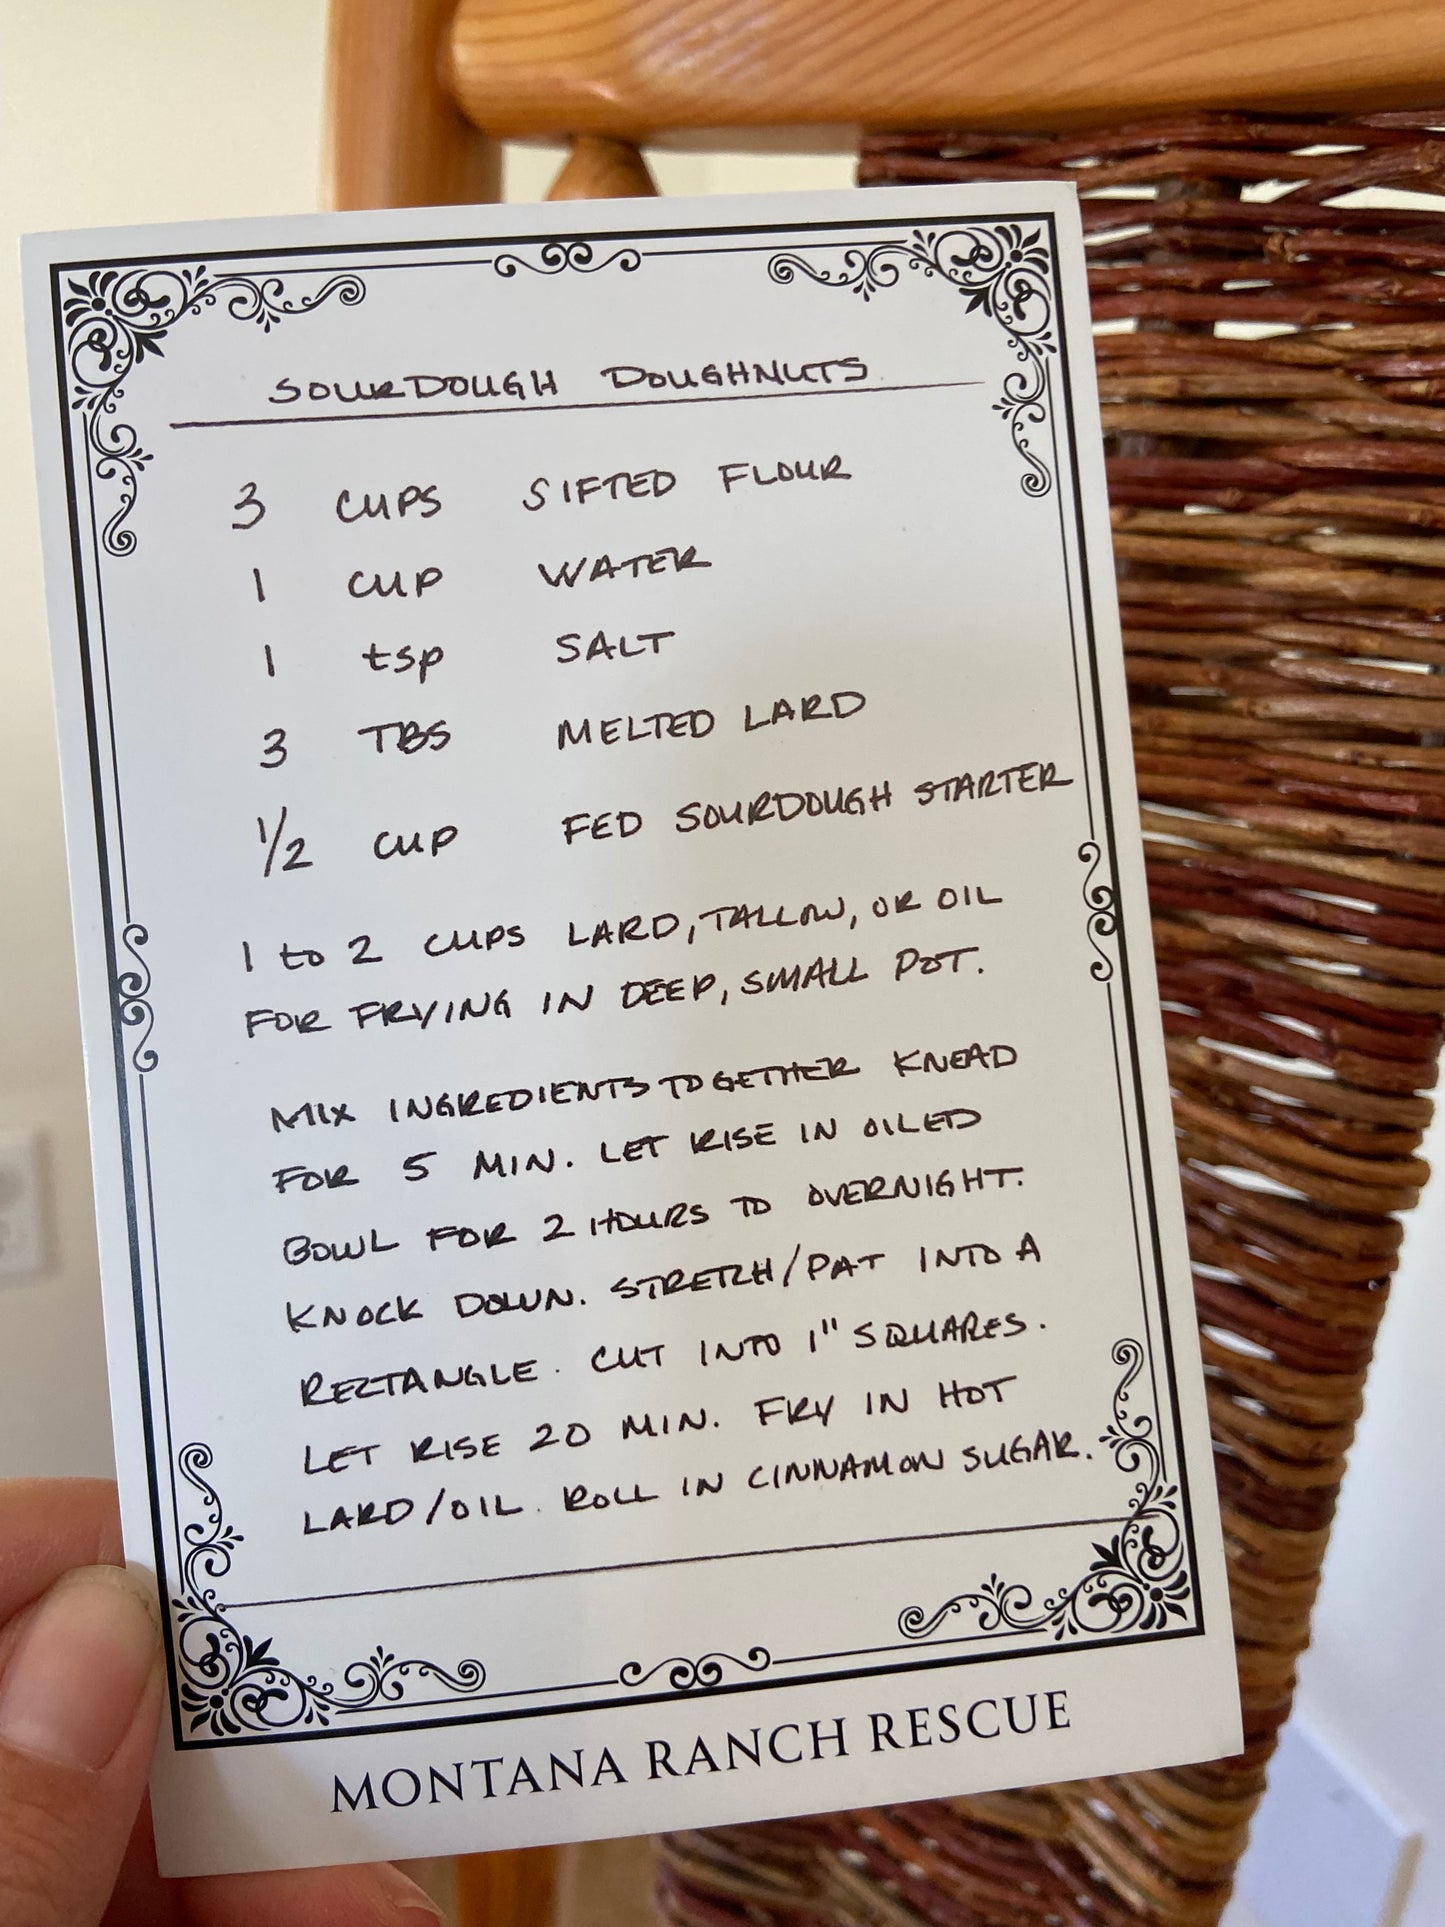 SOURDOUGH DOUGHNUTS
3 CUPS SIFTED FLOUR
1 CUP WATER
1 tsp SALT
3 TBS MELTED LARD
1/2 CUP FED SOURDOUGH STARTER
1 to 2 CUPS LARD, TALLOW, OR OIL
FOR FRYING IN DEEP, SMALL POT.
MIX INGREDIENTS TOGETHER KNEAD
FOR 5 MIN. LET RISE IN OILED
BOWL FOR 2 HOURS TO OVERNIGHT.
KNOCK DOWN. STRETCH/PAT INTO A
RECTANGLE. CUT INTO 1" SQUARES.
LET RISE 20 MIN. FRY IN HOT
LARD/OIL. ROLL IN CINNAMON SUGAR.
MONTANA RANCH RESCUE